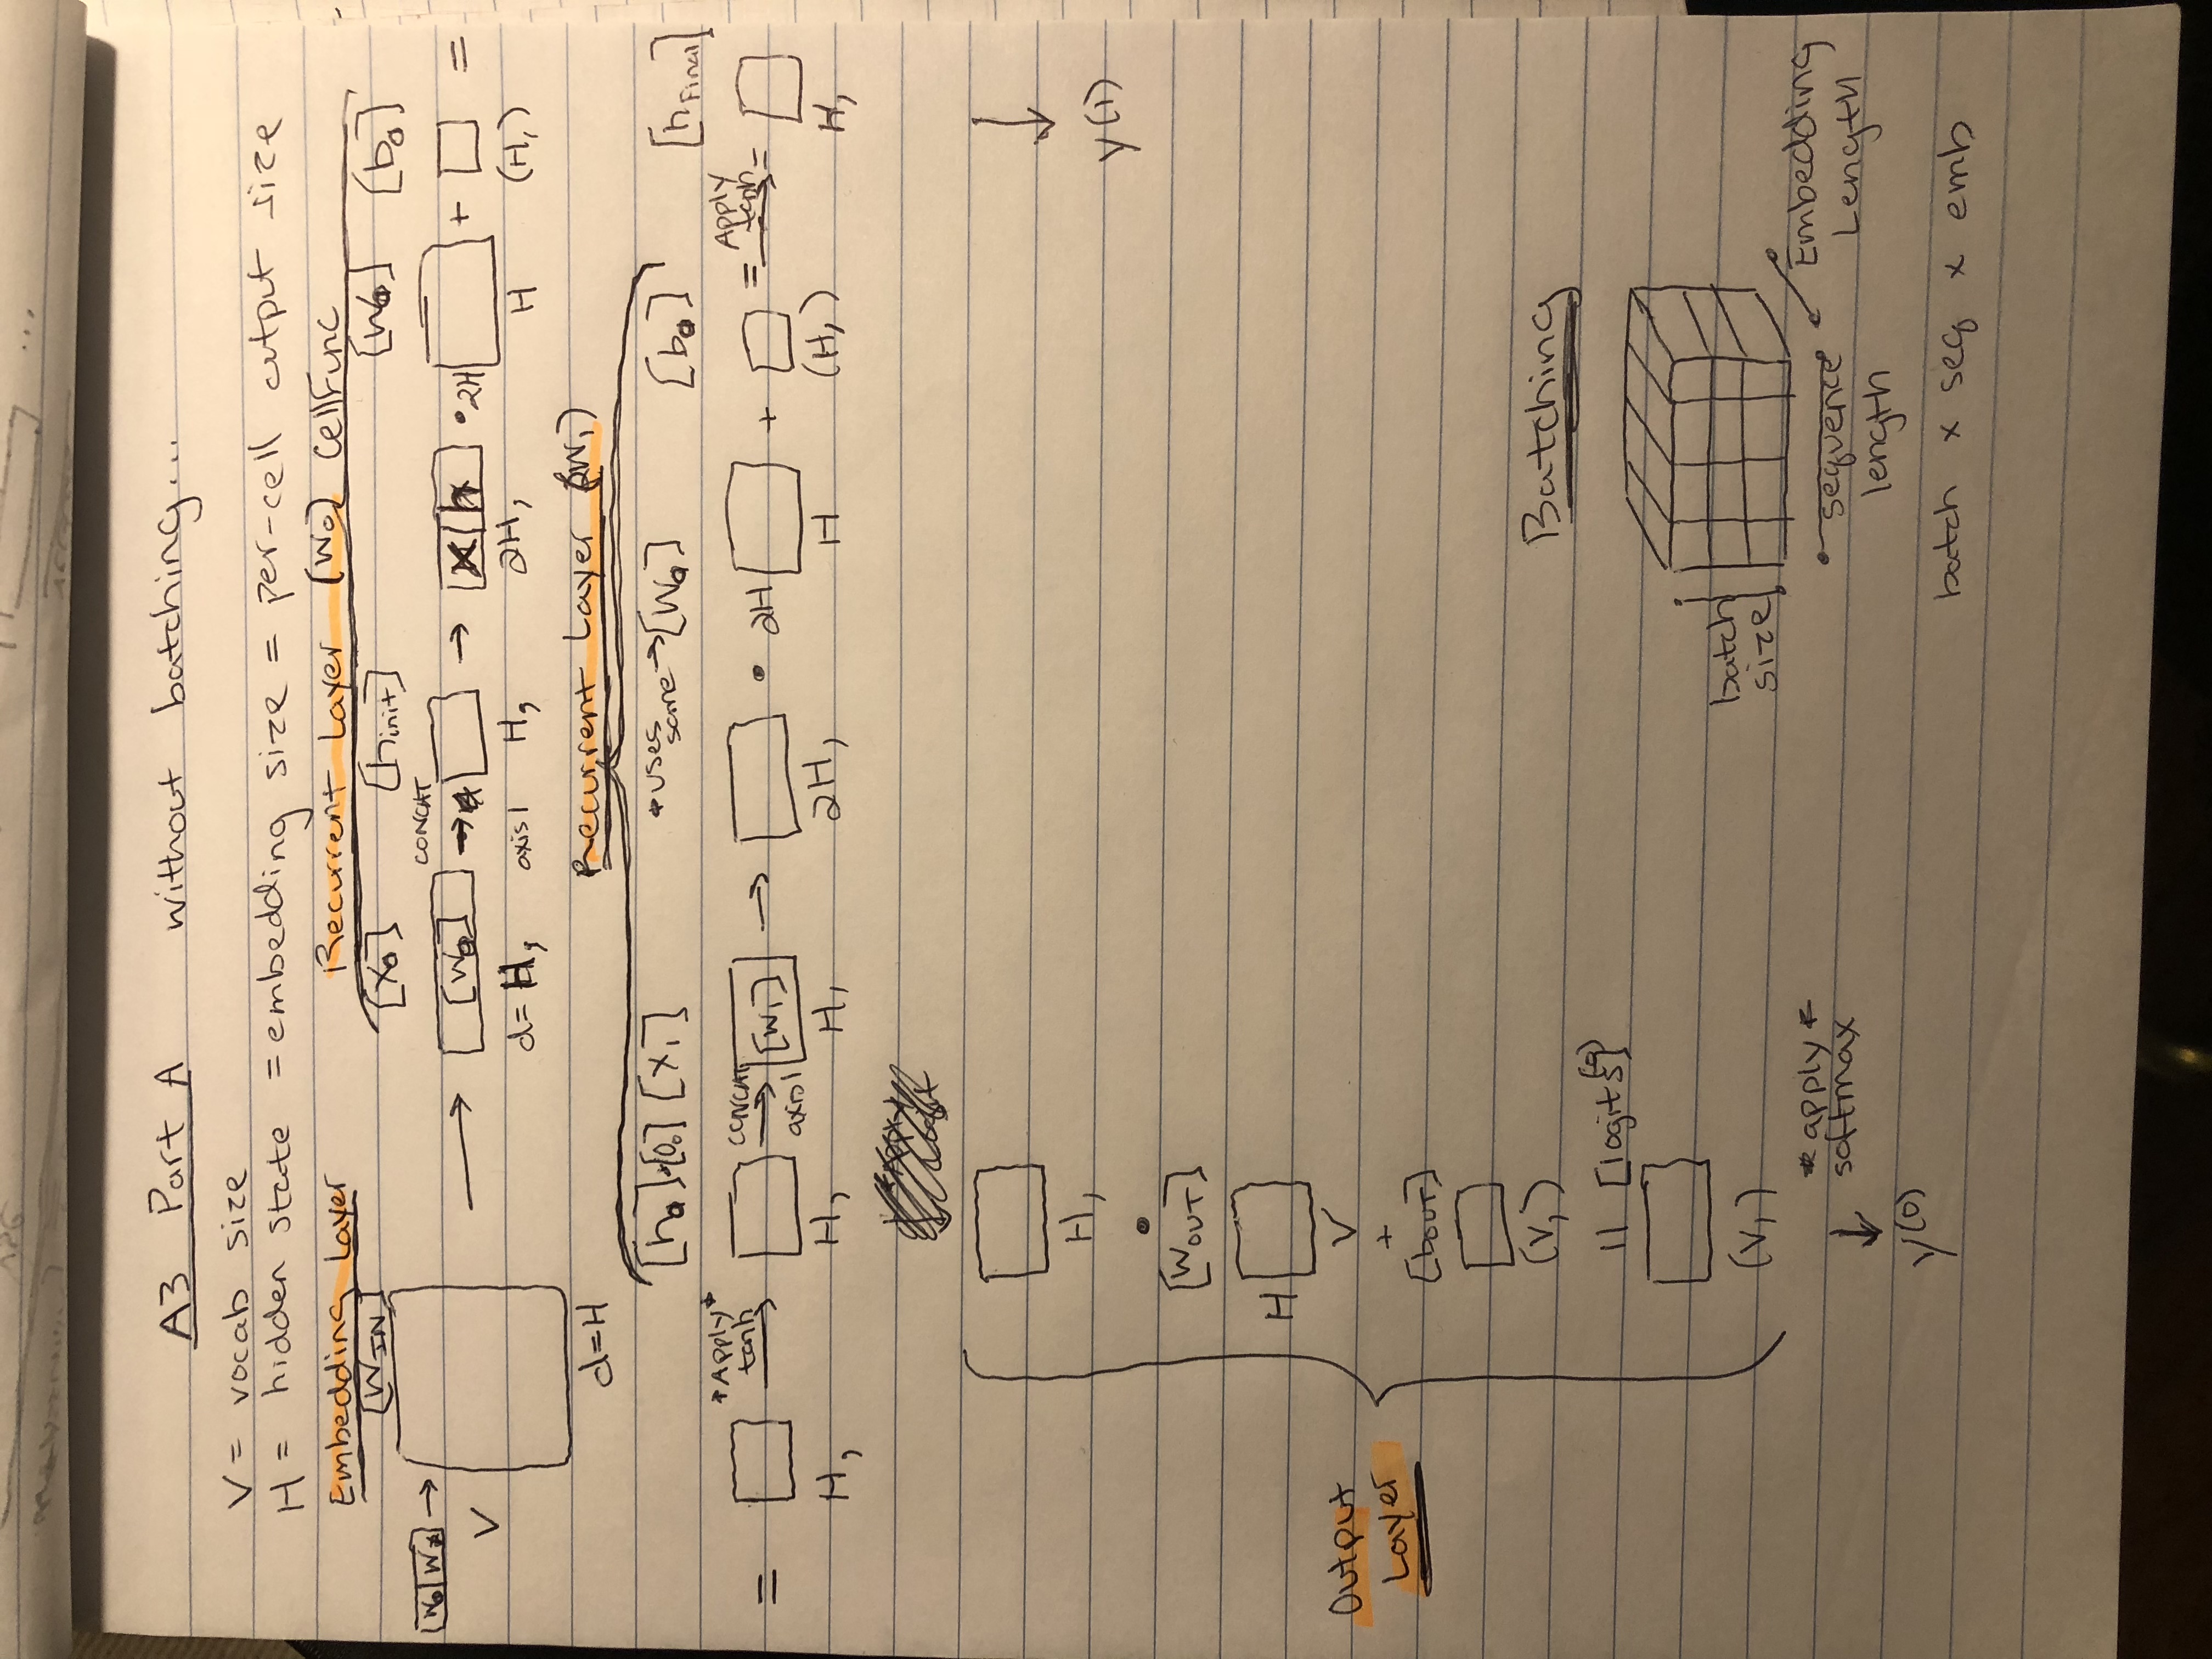 A3 Part A without batching...
V = vocab size
H = hidden state = embedding size = per-cell output size
Embedding Layer Recurrent Layer [w0] cellFunc
[WIN] [x0] [hinit] [W0] [b0]
V [w0] CONCAT 2H + =
d=H, axis1 H, 2H, H (H,)
d=H
Recurrent Layer (w1)
[h0] [o0] [x1] *uses same → [W0] [b0] [hfinal]
= *Apply* tanh → CONCAT axis1 [w1] → • 2H + = Apply tanh → =
H, H, H, 2H, H (H,) H,
H,
•
[WOUT]
H
V
+
[bOUT]
(V,)
|| [logits(0)]
(V,)
*apply*
softmax
y(0)
Output
Layer
y(1)
Batching
batch
size
sequence
length
Embedding
Length
batch x seq x emb